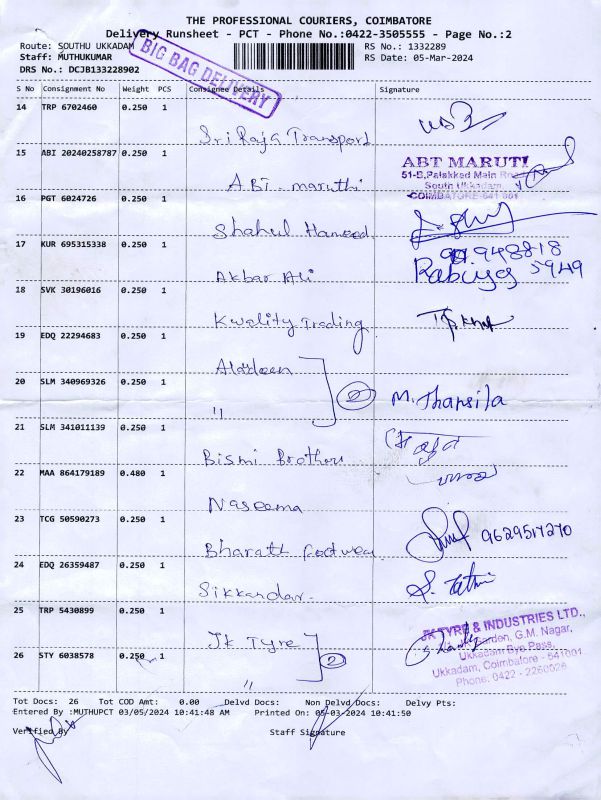 THE PROFESSIONAL COURIERS, COIMBATORE
Delivery Runsheet - PCT - Phone No.:0422-3505555 - Page No.:2
Route: SOUTHU UKKADAM
RS No.: 1332289
Staff: MUTHUKUMAR
RS Date: 05-Mar-2024
DRS No.: DCJB133228902
BIG BAG DELIVERY
S No Consignment No Weight PCS Consignee Details Signature
14 TRP 6702460 0.250 1
Sri Raja Transport
15 ABI 20240258787 0.250 1
ABT MARUTI
51-B, Palakkad Main
South Ukkadam,
COIMBATORE-641 001
ABT. maruthi
16 PGT 6024726 0.250 1
Shahul Hameed
17 KUR 695315338 0.250 1
948818
5949
Akbar Ali
18 SVK 30196016 0.250 1
Kwality Trading
19 EDQ 22294683 0.250 1
Aladeen
20 SLM 340969326 0.250 1
2
M. Thansila
"
21 SLM 341011139 0.250 1
Bismi Brothers
22 MAA 864179189 0.480 1
Naseema
23 TCG 50590273 0.250 1
9629517270
Bharath footwear
24 EDQ 26359487 0.250 1
Sikkandar.
25 TRP 5430899 0.250 1
JK TYRE & INDUSTRIES LTD.,
Garden, G.M. Nagar,
Ukkadam Bye Pass,
Ukkadam, Coimbatore - 641001.
Phone: 0422 - 2260026
JK Tyre
26 STY 6038578 0.250 1
2
"
Tot Docs: 26 Tot COD Amt: 0.00 Delvd Docs: Non Delvd Docs: Delvy Pts:
Entered By :MUTHUPCT 03/05/2024 10:41:48 AM Printed On: 05-03-2024 10:41:50
Verified By Staff Signature